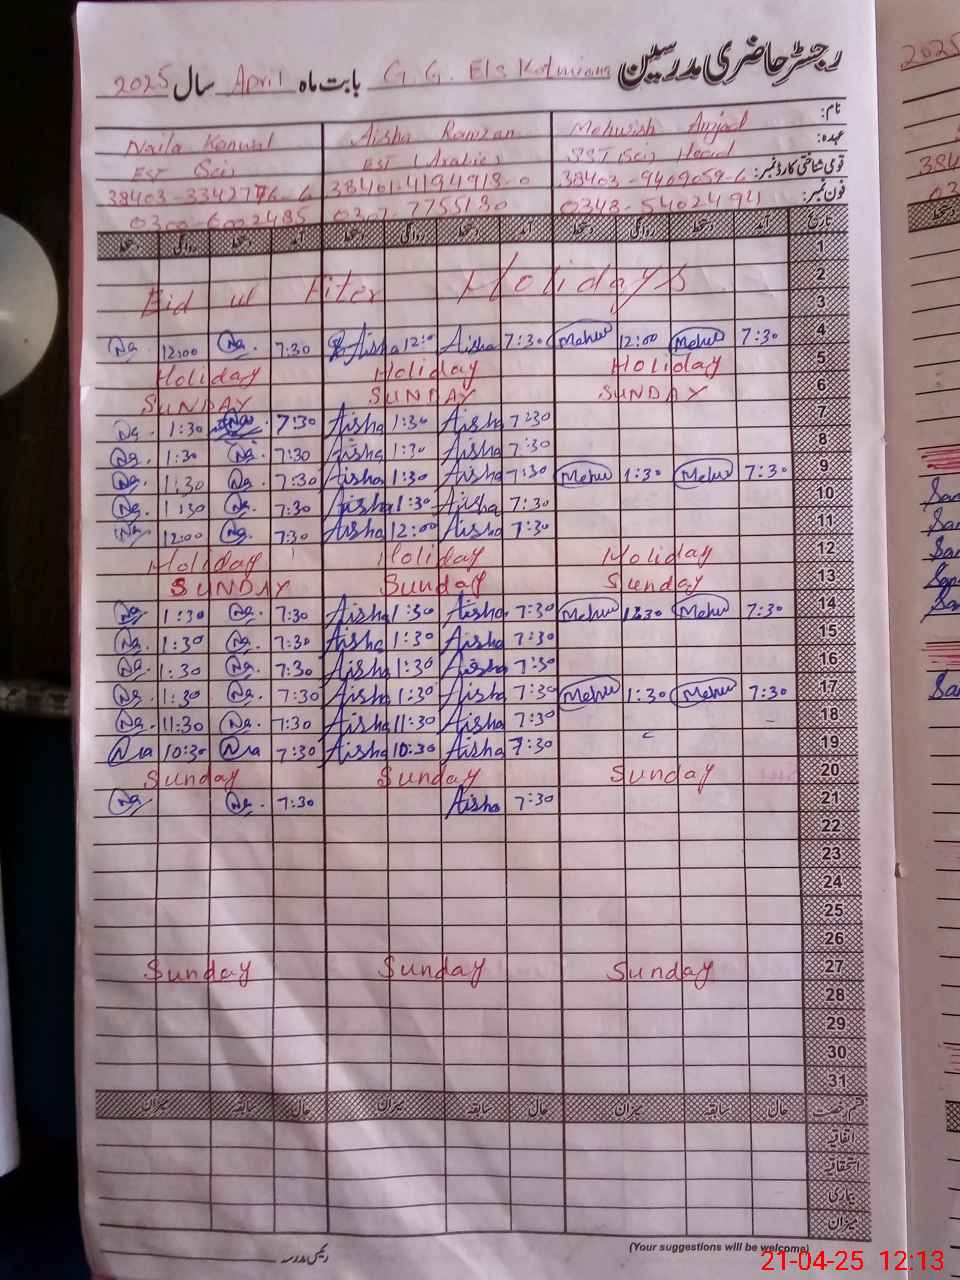 رجسٹر حاضری مدرسین G.G. E/s Kotmiana بابت ماہ April سال 2025
نام: Mehwish Amjad Aisha Ramzan Naila Kanwal
عہدہ: SST (Sci) Head EST (Arabic) EST Sci
قومی شناختی کارڈ نمبر: 38403-9409059-6 38401-4194913-0 38403-3342776-6
فون نمبر: 0348-5402491 0307-7755130 0300-6002485
تاریخ آمد دستخط روانگی دستخط آمد دستخط روانگی دستخط آمد دستخط روانگی دستخط
1
2 Eid ul Fiter Holidays
3
4 7:30 Mehw 12:00 Mehw 7:30 Aisha 12:0 Aisha 7:30 Na. 12:00 Na.
5 Holiday Holiday Holiday
6 SUNDAY SUNDAY SUNDAY
7 7:30 Aisha 1:30 Aisha 7:30 Na. 1:30 Na.
8 7:30 Aisha 1:30 Aisha 7:30 Na. 1:30 Na.
9 7:30 Mehw 1:30 Mehw 7:30 Aisha 1:30 Aisha 7:30 Na. 1:30 Na.
10 7:30 Aisha 1:30 Aisha 7:30 Na. 1:30 Na.
11 7:30 Aisha 12:00 Aisha 7:30 Na. 12:00 Na.
12 Holiday Holiday Holiday
13 Sunday Sunday SUNDAY
14 7:30 Mehw 1:30 Mehw 7:30 Aisha 1:30 Aisha 7:30 Na. 1:30 Na.
15 7:30 Aisha 1:30 Aisha 7:30 Na. 1:30 Na.
16 7:30 Aisha 1:30 Aisha 7:30 Na. 1:30 Na.
17 7:30 Mehw 1:30 Mehw 7:30 Aisha 1:30 Aisha 7:30 Na. 1:30 Na.
18 7:30 Aisha 11:30 Aisha 7:30 Na. 11:30 Na.
19 7:30 Aisha 10:30 Aisha 7:30 Nia 10:30 Nia
20 Sunday Sunday Sunday
21 7:30 Aisha 7:30 Na. Na.
22
23
24
25
26
27 Sunday Sunday Sunday
28
29
30
31
قسم رخصت حال سابقہ میزان حال سابقہ میزان حال سابقہ میزان
اتفاقیہ
استحقاقیہ
بیماری
میزان
رئیس مدرسہ
(Your suggestions will be welcome)
21-04-25 12:13
2025